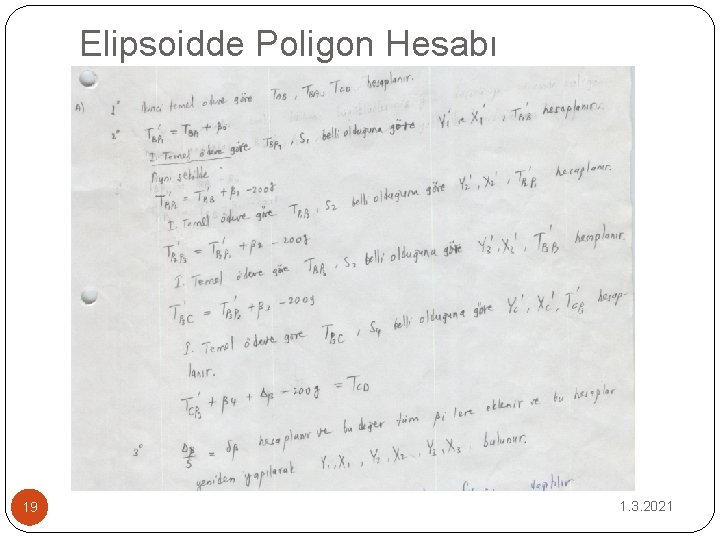 Elipsoidde Poligon Hesabı
A) 1° İkinci temel ödeve göre TAB, TBA, TCD hesaplanır.
2° T'BP1 = TBA + β0
I. Temel ödeve göre TBP1, S1 belli olduğuna göre Y1' X1', T'P1B hesaplanır.
Aynı şekilde
+ β1 - 200g
I. Temel ödeve göre S2 belli olduğuna göre Y2', X2', hesaplanır.
+ β2 - 200g
I. Temel ödeve göre belli olduğuna göre Y3', X3', hesaplanır.
- 200g
I. Temel ödeve göre S4 belli olduğuna göre Yc', Xc', hesap-
lanır.
+ β4 + Δβ - 200g = TCD
3° Δβ/5 = δβ hesaplanır ve bu değer tüm βi lere eklenir ve bu hesaplar
yeniden yapılarak Y1, X1, Y2, X2, Y3, X3 bulunur.
19
1.3.2021